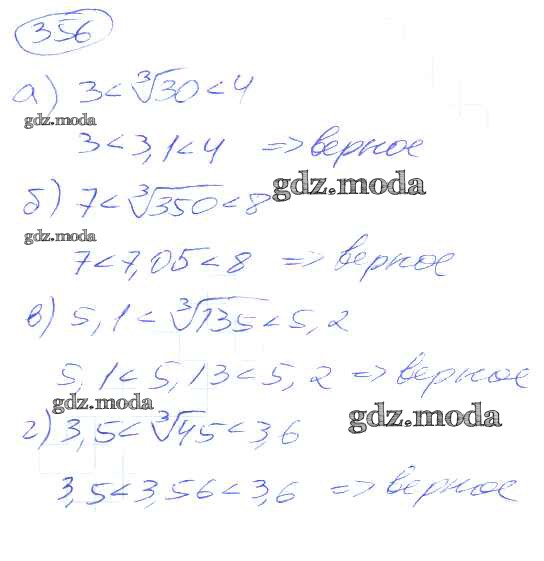 356
а) 3 < ∛30 < 4
gdz.moda
3 < 3,1 < 4 => верное
gdz.moda
б) 7 < ∛350 < 8
gdz.moda
7 < 7,05 < 8 => верное
в) 5,1 < ∛135 < 5,2
5,1 < 5,13 < 5,2 => верное
gdz.moda
gdz.moda
г) 3,5 < ∛45 < 3,6
3,5 < 3,56 < 3,6 => верное